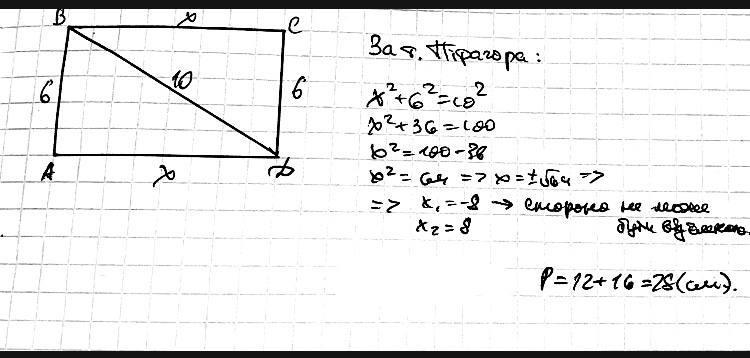 B x C
6 10 6
A x D
За т. Піфагора:
x²+6²=10²
x²+36=100
x²=100-36
x²=64 => x=±√64 =>
=> x₁=-8 → сторона не може
бути від'ємною
x₂=8
P=12+16=28(см).